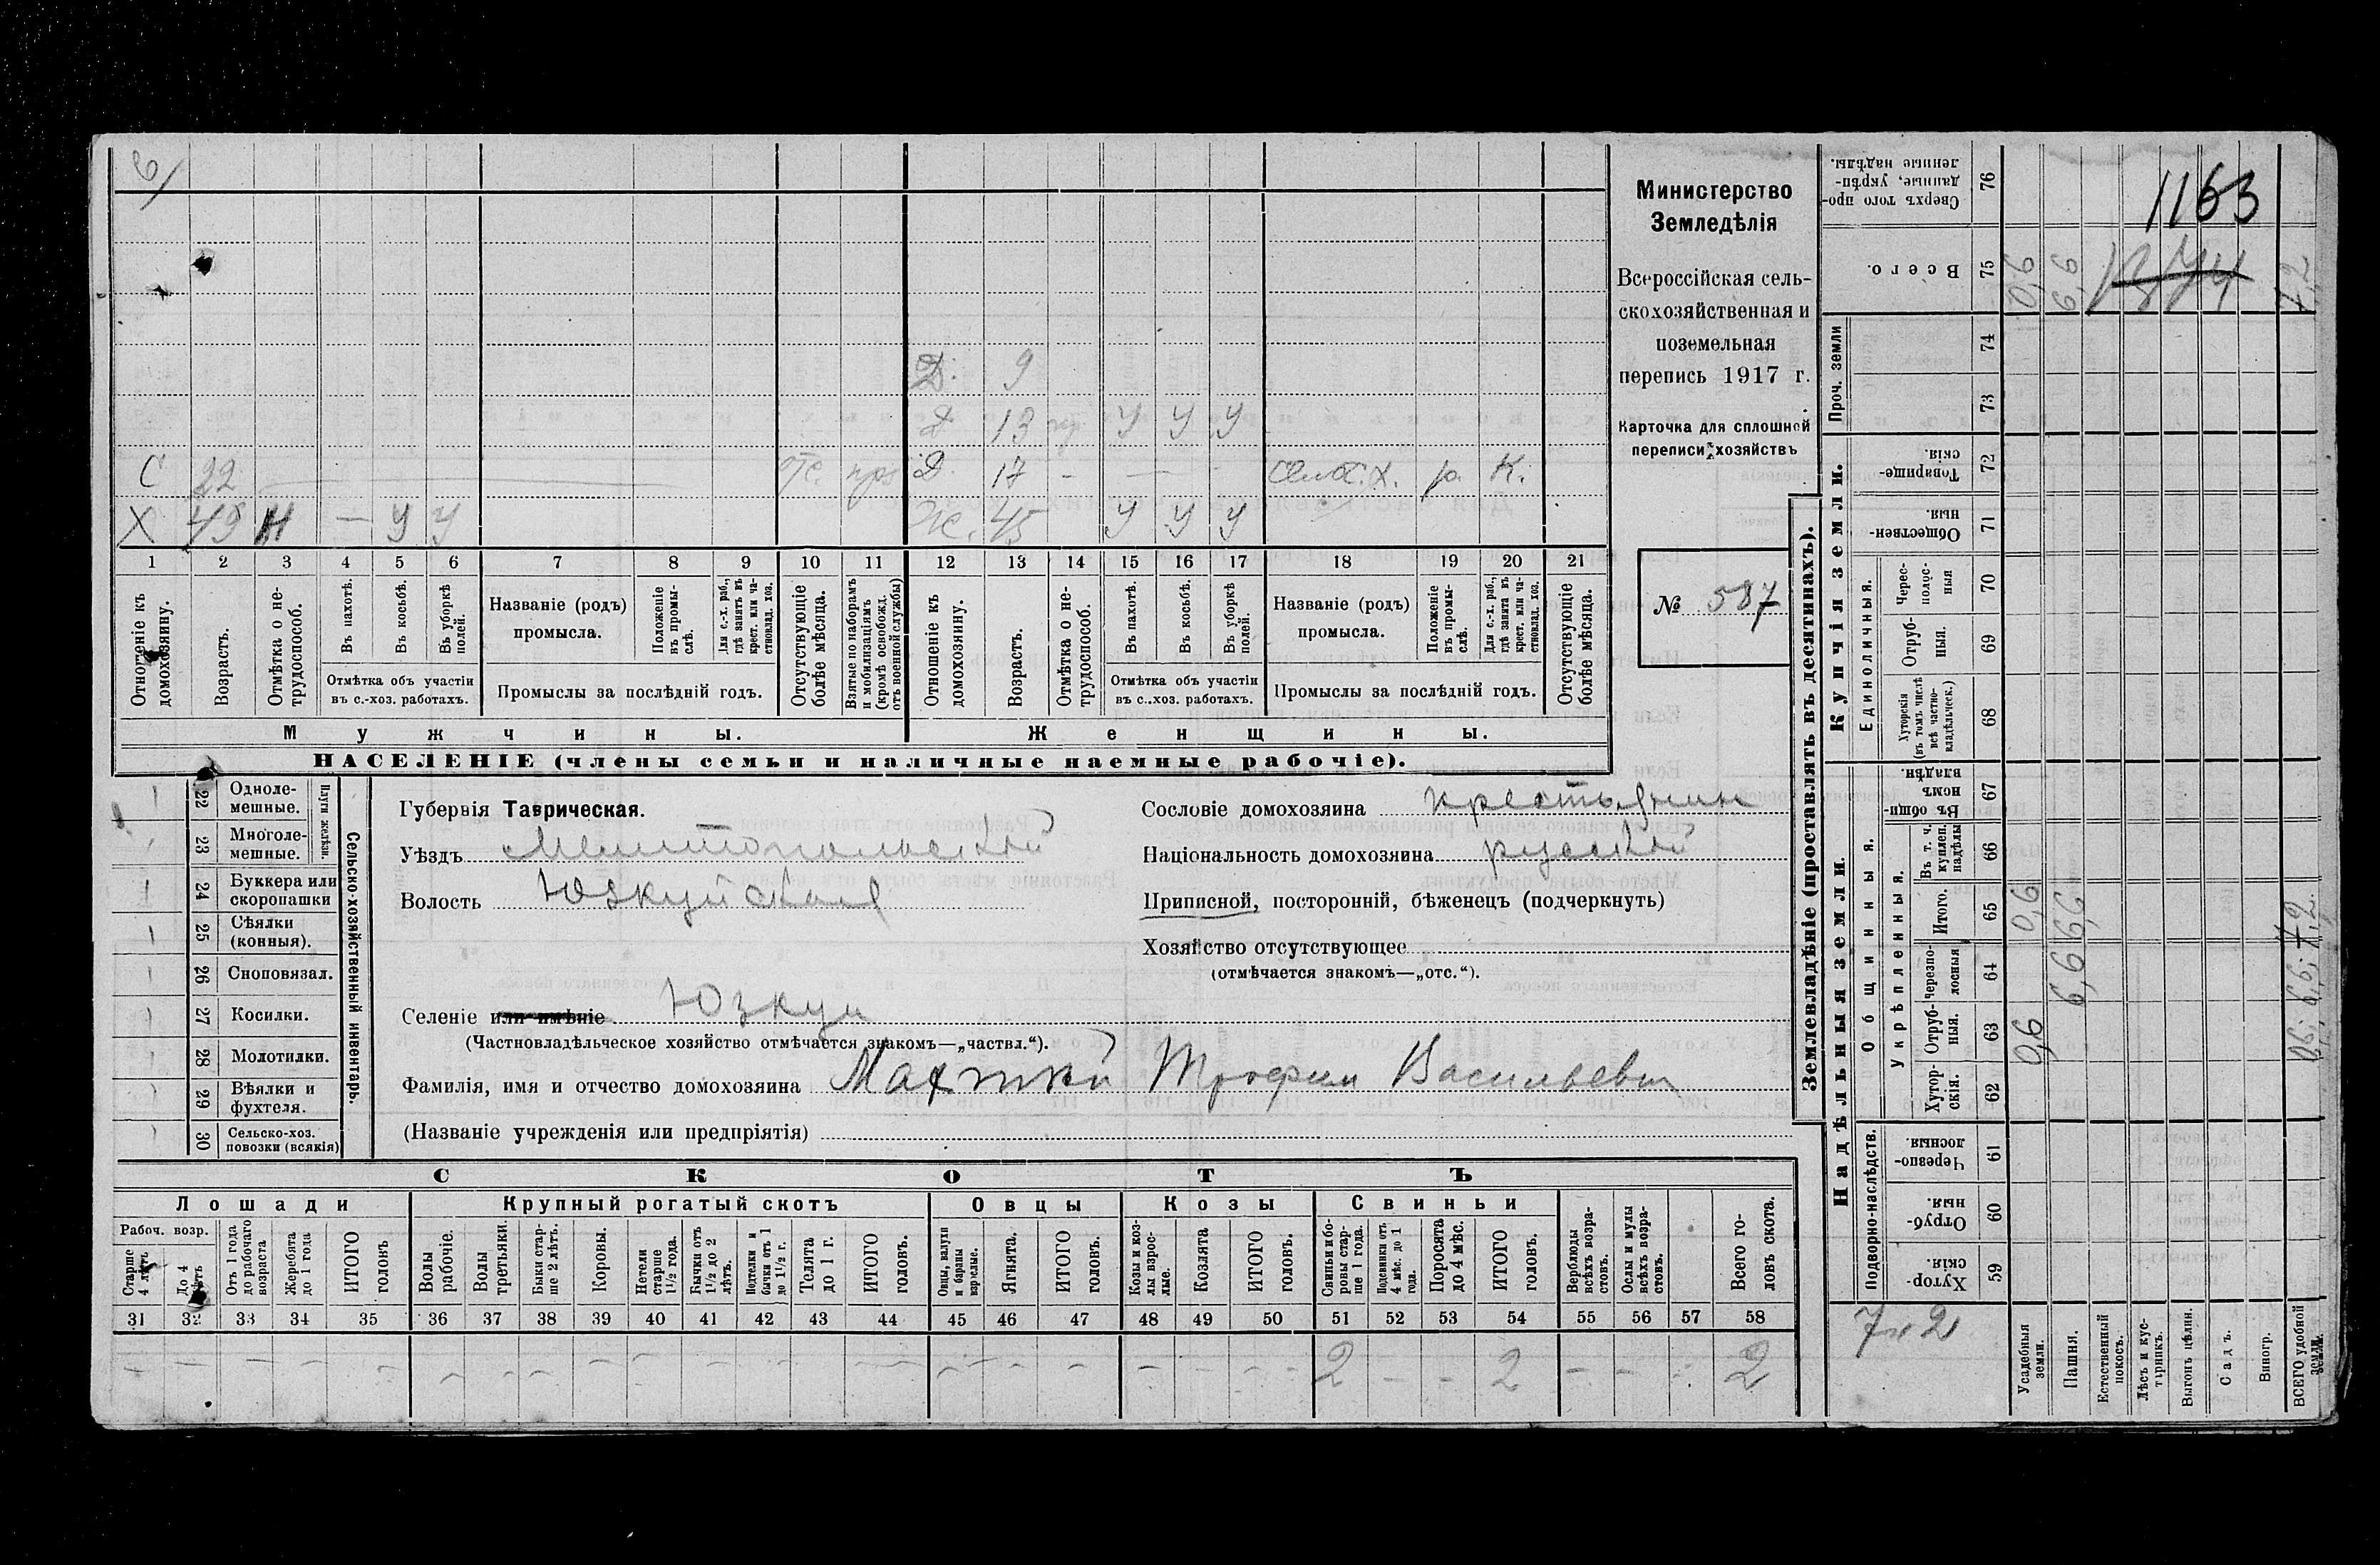 6/
Д. 9
Д 13 У У У
С 22 отс. Д. 17 - - - сельс.х. р. К.
Х 49 Н - У У Ж. 45 У У У
1 2 3 4 5 6 7 8 9 10 11 12 13 14 15 16 17 18 19 20 21
Отношеніе къ домохозяину.
Возрастъ.
Отмѣтка о не-
трудоспособ.
Въ пахотѣ.
Въ косьбѣ.
Въ уборкѣ
полей.
Отмѣтка объ участіи
въ с.-хоз. работахъ.
Названіе (родъ)
промысла.
Положеніе
въ промы-
слѣ.
Для с.-х. раб.,
гдѣ занятъ въ
крест. или ча-
стновлад. хоз.
Промыслы за послѣдній годъ.
Отсутствующіе
болѣе мѣсяца.
Взятые по наборамъ
и мобилизаціямъ
(кромѣ освобожд.
отъ военной службы)
Отношеніе къ
домохозяину.
Возрастъ.
Отмѣтка о не-
трудоспособ.
Въ пахотѣ.
Въ косьбѣ.
Въ уборкѣ
полей.
Отмѣтка объ участіи
въ с.-хоз. работахъ.
Названіе (родъ)
промысла.
Положеніе
въ промы-
слѣ.
Для с.-х. раб.,
гдѣ занята въ
крест. или ча-
стновлад. хоз.
Промыслы за послѣдній годъ.
Отсутствующіе
болѣе мѣсяца.
Мужчины. Женщины.
НАСЕЛЕНІЕ (члены семьи и наличные наемные рабочіе).
Министерство
Земледѣлія
Всероссійская сель-
скохозяйственная и
поземельная
перепись 1917 г.
Карточка для сплошной
переписи хозяйствъ
№ 587
22 Одноле-
мешные.
23 Многоле-
мешные.
Плуги желѣзн.
24 Буккера или
скоропашки
25 Сѣялки
(конныя).
26 Сноповязал.
27 Косилки.
28 Молотилки.
29 Вѣялки и
фухтеля.
30 Сельско-хоз.
повозки (всякія)
Сельско-хозяйственный инвентарь.
Губернія Таврическая.
Уѣздъ Мелитопольский
Волость Юзкуйская
Селеніе или имѣніе Юзкуи
(Частновладѣльческое хозяйство отмѣчается знакомъ—„частвл.“).
Фамилія, имя и отчество домохозяина Трофим Васильевич
(Названіе учрежденія или предпріятія)
Сословіе домохозяина крестьянин
Національность домохозяина русский
Приписной, посторонній, бѣженецъ (подчеркнуть)
Хозяйство отсутствующее
(отмѣчается знакомъ—„отс.“).
СКОТЪ
Лошади Крупный рогатый скотъ Овцы Козы Свиньи
Рабоч. возр.
Старше
4 лѣтъ
До 4
лѣтъ
Отъ 1 года
до рабочаго
возраста
Жеребята
до 1 года
ИТОГО
головъ
Волы
рабочіе.
Волы
третьяки.
Быки стар-
ше 2 лѣтъ.
Коровы.
Нетели
старше
1½ года.
Бычки отъ
1½ до 2
лѣтъ.
Подтелки и
бычки отъ 1
до 1½ г.
Телята
до 1 г.
ИТОГО
головъ.
Овцы, валухи
и бараны
взрослые.
Ягнята.
ИТОГО
головъ.
Козы и коз-
лы взрос-
лые.
Козлята
ИТОГО
головъ.
Свиньи и бо-
ровы стар-
ше 1 года.
Подсвинки отъ
4 мѣс. до 1
года.
Поросята
до 4 мѣс.
ИТОГО
головъ.
Верблюды
всѣхъ возра-
стовъ.
Ослы и мулы
всѣхъ возра-
стовъ.
Всего го-
ловъ скота.
31 32 33 34 35 36 37 38 39 40 41 42 43 44 45 46 47 48 49 50 51 52 53 54 55 56 57 58
2 - - 2 - - - 2
Землевладѣніе (проставлять въ десятинахъ).
Надѣльныя земли. Купчія земли. Проч. земли
Подворно-наслѣдств.
Общинныя.
Укрѣпленныя.
Единоличныя.
Хутор-
скія. 59
Отруб-
ныя. 60
Черезпо-
лосныя. 61
Хутор-
скія. 62
Отруб-
ныя. 63
Черезпо-
лосныя 64
Итого. 65
Въ т. ч.
куплен.
надѣлы 66
Въ общи-
номъ
владѣн. 67
Хуторскія
(въ томъ числѣ
всѣ частно-
владѣльческ.) 68
Отруб-
ныя. 69
Черес-
полос-
ныя 70
Обществен-
ныя. 71
Товарище-
скія. 72
73
74
Всего. 75
Сверхъ того про-
данные, укрѣп-
ленные надѣлы. 76
Усадебныя
земли. 0,6 0,6 0,6
Пашня. 6,6 6,6 6,6
Естественный
покосъ.
Лѣсъ и кус-
тарникъ.
Выгонъ цѣлин.
Садъ.
Виногр.
ВСЕГО удобной
земли. 0,6; 6,6; 7,2 7,2
1163